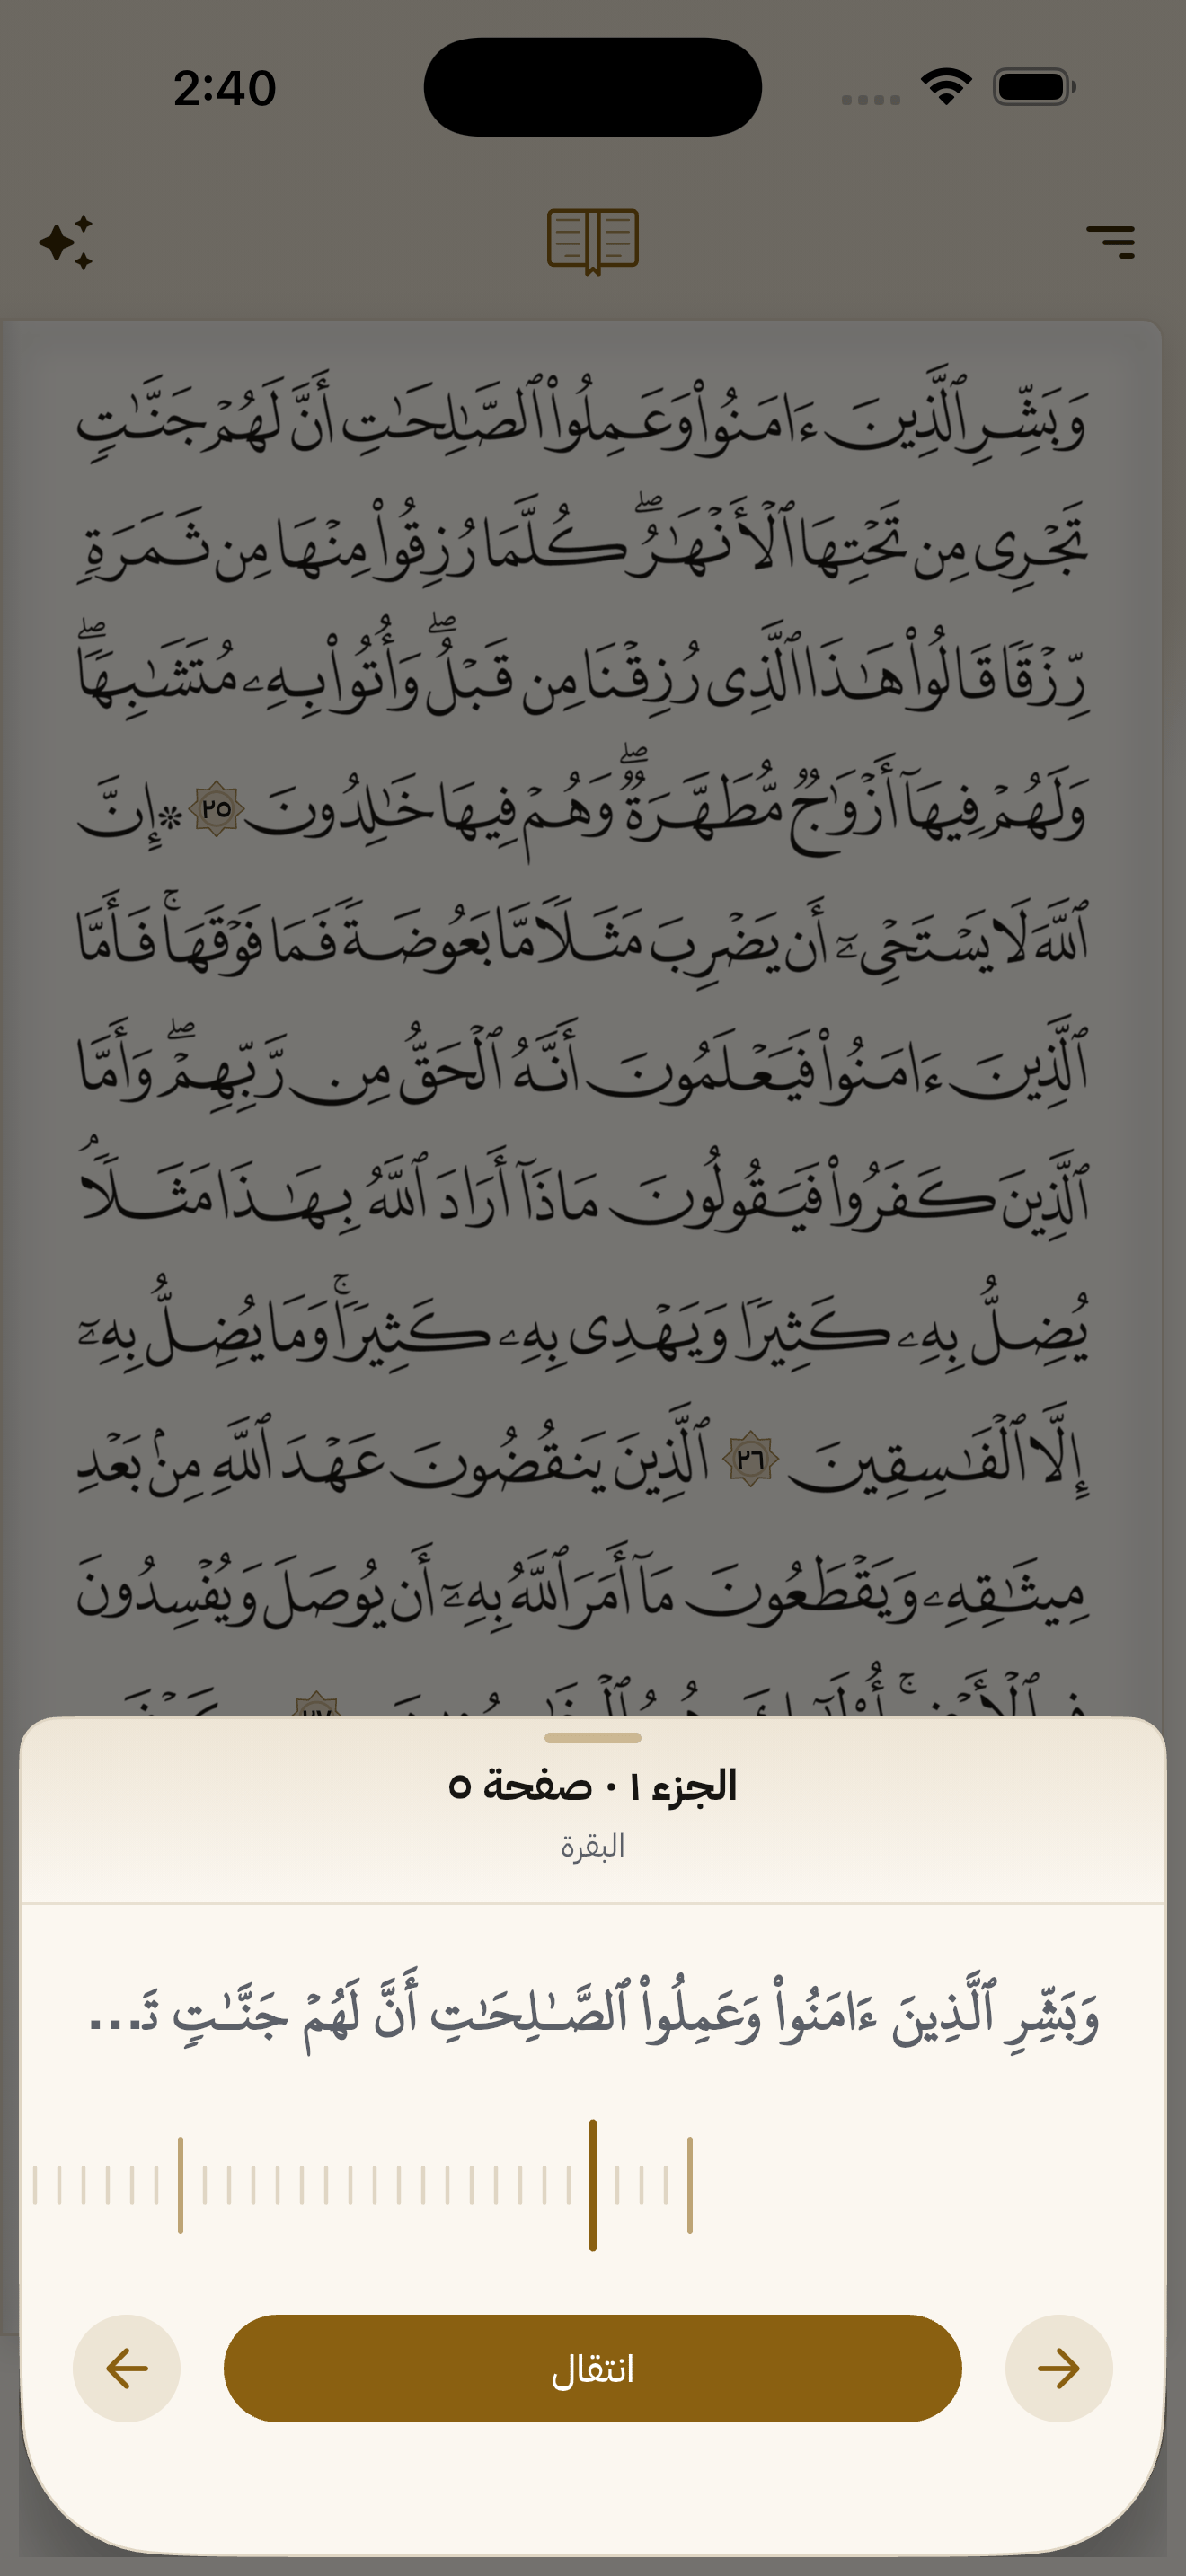 2:40
وَبَشِّرِ ٱلَّذِينَ ءَامَنُوا۟ وَعَمِلُوا۟ ٱلصَّـٰلِحَـٰتِ أَنَّ لَهُمْ جَنَّـٰتٍ
تَجْرِى مِن تَحْتِهَا ٱلْأَنْهَـٰرُ ۖ كُلَّمَا رُزِقُوا۟ مِنْهَا مِن ثَمَرَةٍ
رِّزْقًا قَالُوا۟ هَـٰذَا ٱلَّذِى رُزِقْنَا مِن قَبْلُ ۖ وَأُتُوا۟ بِهِۦ مُتَشَـٰبِهًا ۖ
وَلَهُمْ فِيهَآ أَزْوَٰجٌ مُّطَهَّرَةٌ ۖ وَهُمْ فِيهَا خَـٰلِدُونَ ٢٥ ۞ إِنَّ
ٱللَّهَ لَا يَسْتَحْىِۦٓ أَن يَضْرِبَ مَثَلًا مَّا بَعُوضَةً فَمَا فَوْقَهَا ۚ فَأَمَّا
ٱلَّذِينَ ءَامَنُوا۟ فَيَعْلَمُونَ أَنَّهُ ٱلْحَقُّ مِن رَّبِّهِمْ ۖ وَأَمَّا
ٱلَّذِينَ كَفَرُوا۟ فَيَقُولُونَ مَاذَآ أَرَادَ ٱللَّهُ بِهَـٰذَا مَثَلًا ۘ
يُضِلُّ بِهِۦ كَثِيرًا وَيَهْدِى بِهِۦ كَثِيرًا ۚ وَمَا يُضِلُّ بِهِۦٓ
إِلَّا ٱلْفَـٰسِقِينَ ٢٦ ٱلَّذِينَ يَنقُضُونَ عَهْدَ ٱللَّهِ مِنۢ بَعْدِ
مِيثَـٰقِهِۦ وَيَقْطَعُونَ مَآ أَمَرَ ٱللَّهُ بِهِۦٓ أَن يُوصَلَ وَيُفْسِدُونَ
الجزء ١ · صفحة ٥
البقرة
وَبَشِّرِ ٱلَّذِينَ ءَامَنُوا۟ وَعَمِلُوا۟ ٱلصَّـٰلِحَـٰتِ أَنَّ لَهُمْ جَنَّـٰتٍ تَ...
انتقال